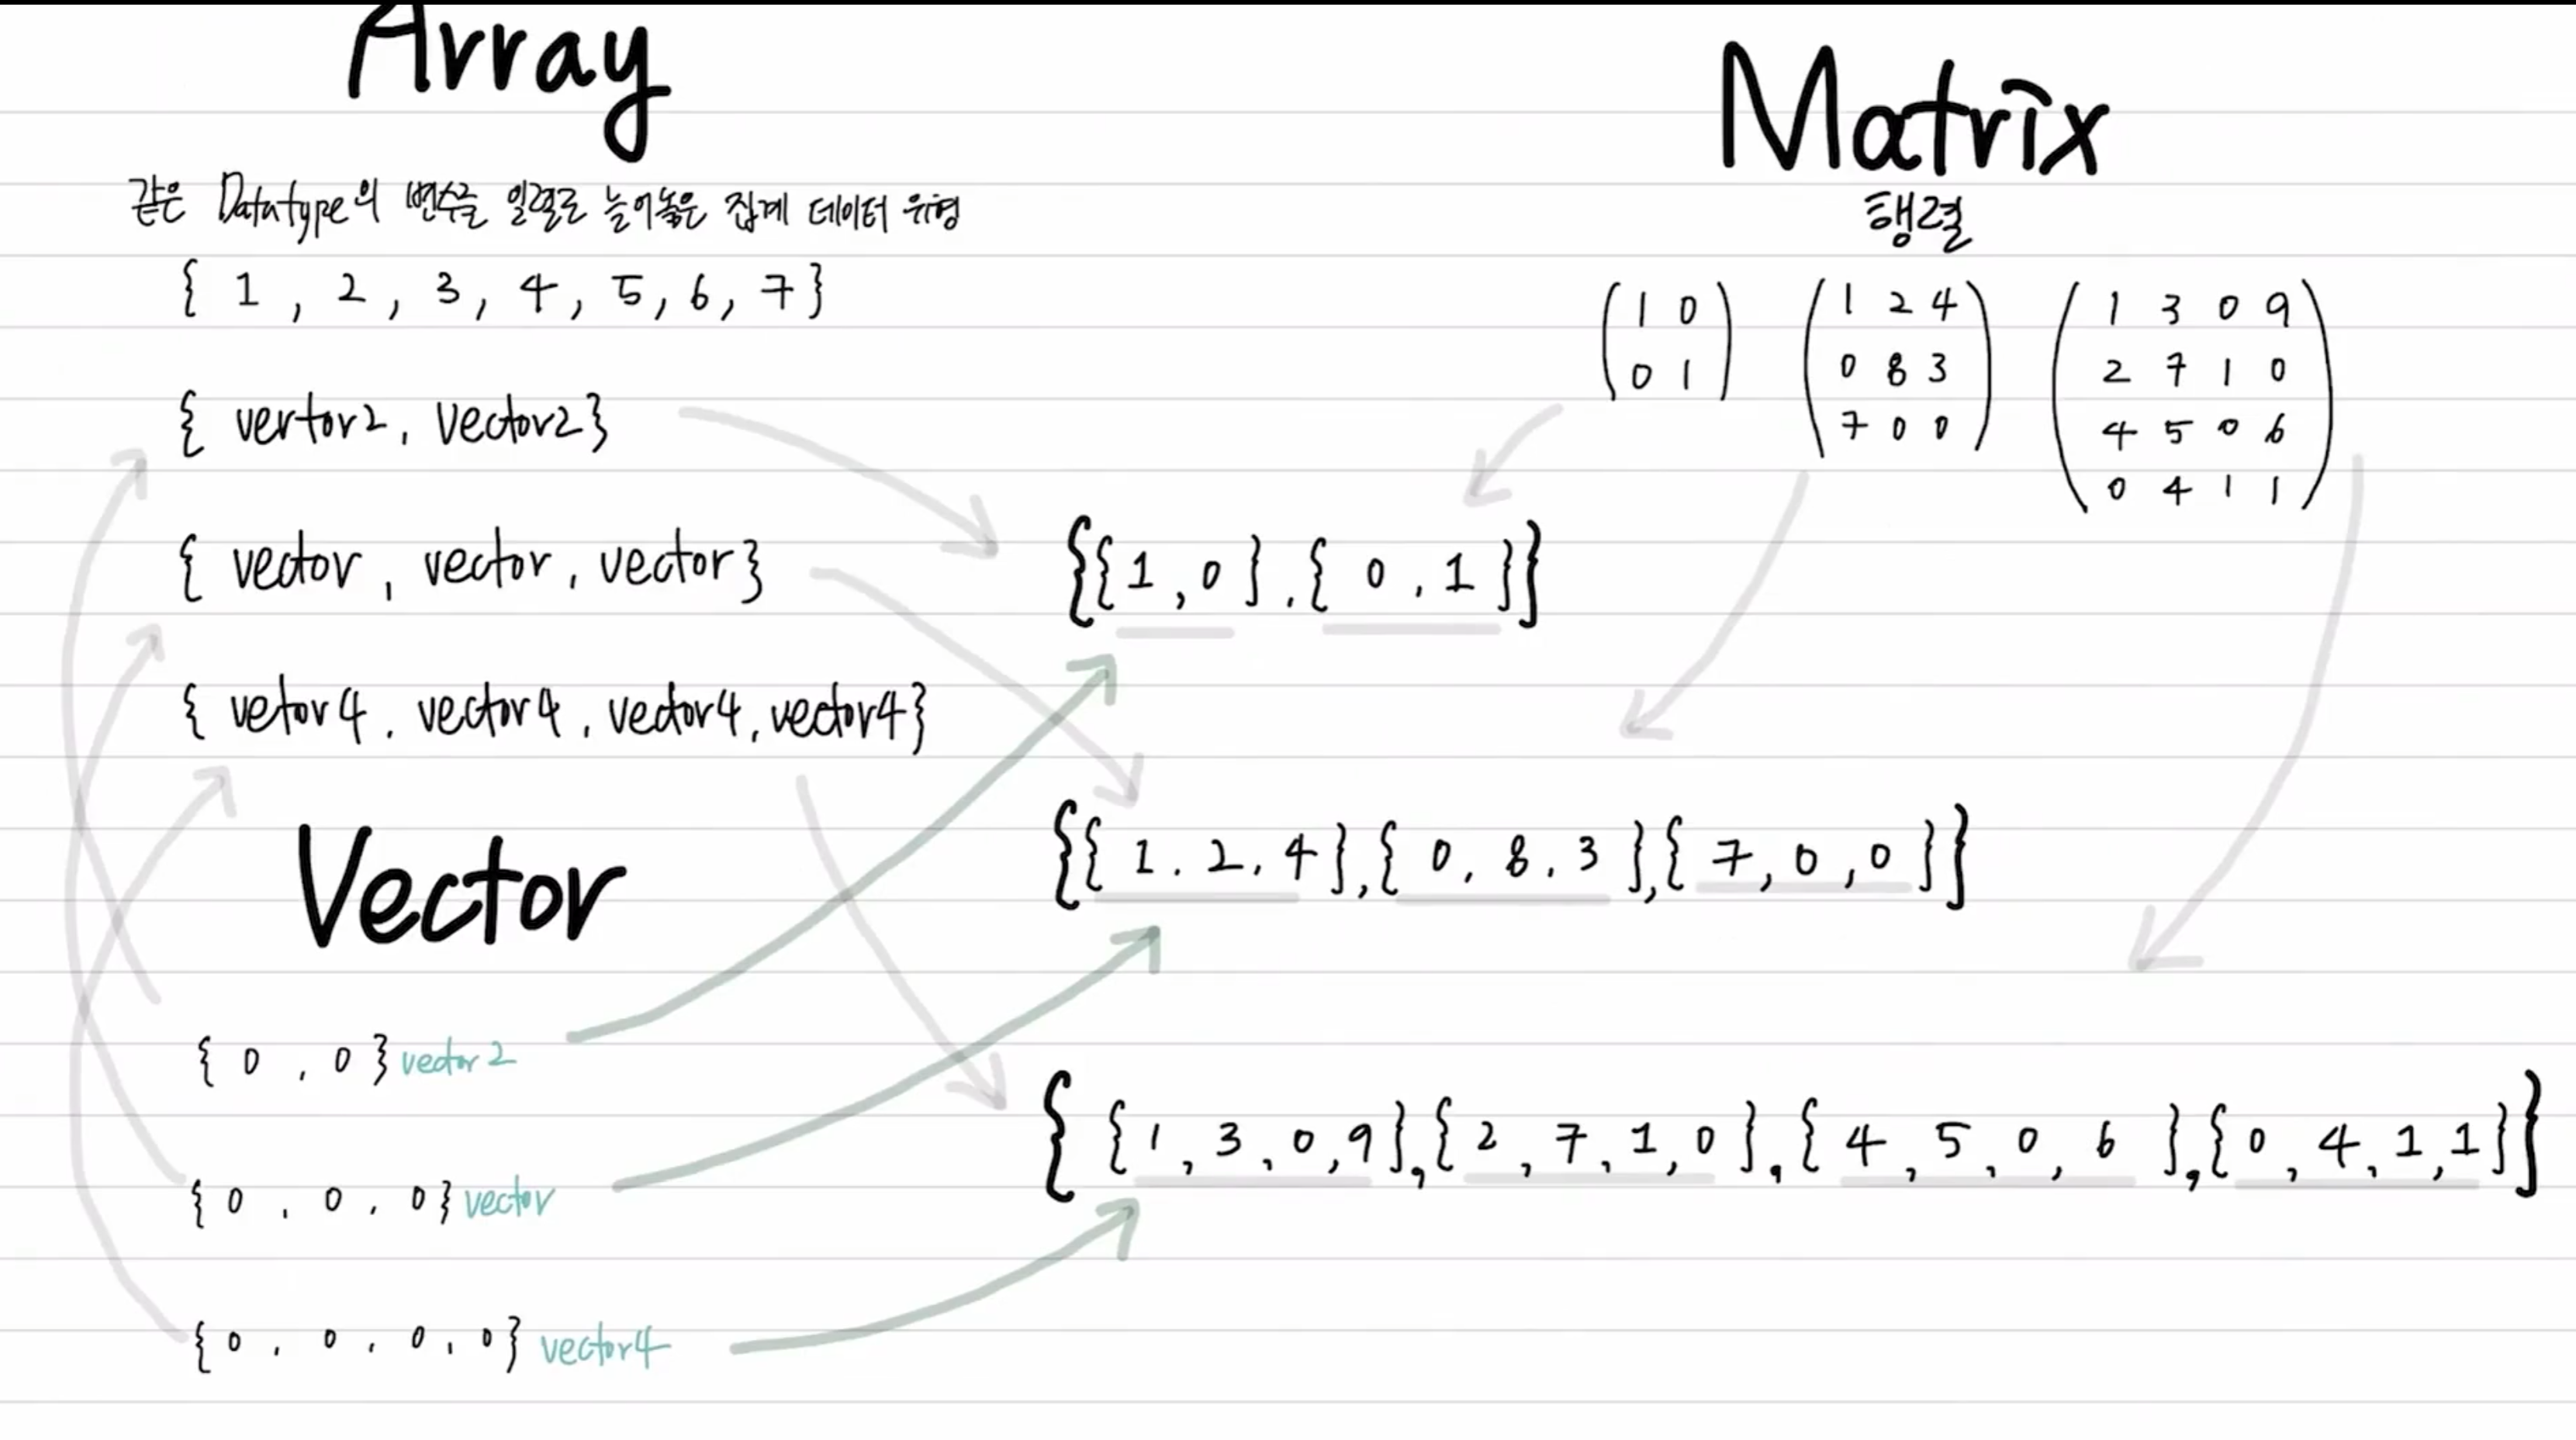 Array
같은 Datatype의 변수를 일렬로 늘어놓은 집계 데이터 유형
{ 1 , 2 , 3 , 4 , 5 , 6 , 7 }
{ vertor2, vector2}
{ vector, vector, vector}
{ vetor4. vector4, vector4, vector4}
Vector
{ 0 , 0 } vector2
{ 0 , 0 , 0 } vector
{ 0 , 0 , 0 , 0 } vector4
Matrix
행렬
1 0
0 1
1 2 4
0 8 3
7 0 0
1 3 0 9
2 7 1 0
4 5 0 6
0 4 1 1
{{ 1 , 0 }.{ 0 , 1 }}
{{ 1 . 2 . 4 },{ 0 , 8 . 3 },{ 7 , 0 , 0 }}
{ { 1 , 3 , 0 , 9 },{ 2 , 7 , 1 , 0 },{ 4 , 5 , 0 , 6 },{ 0 , 4 , 1 , 1 }}